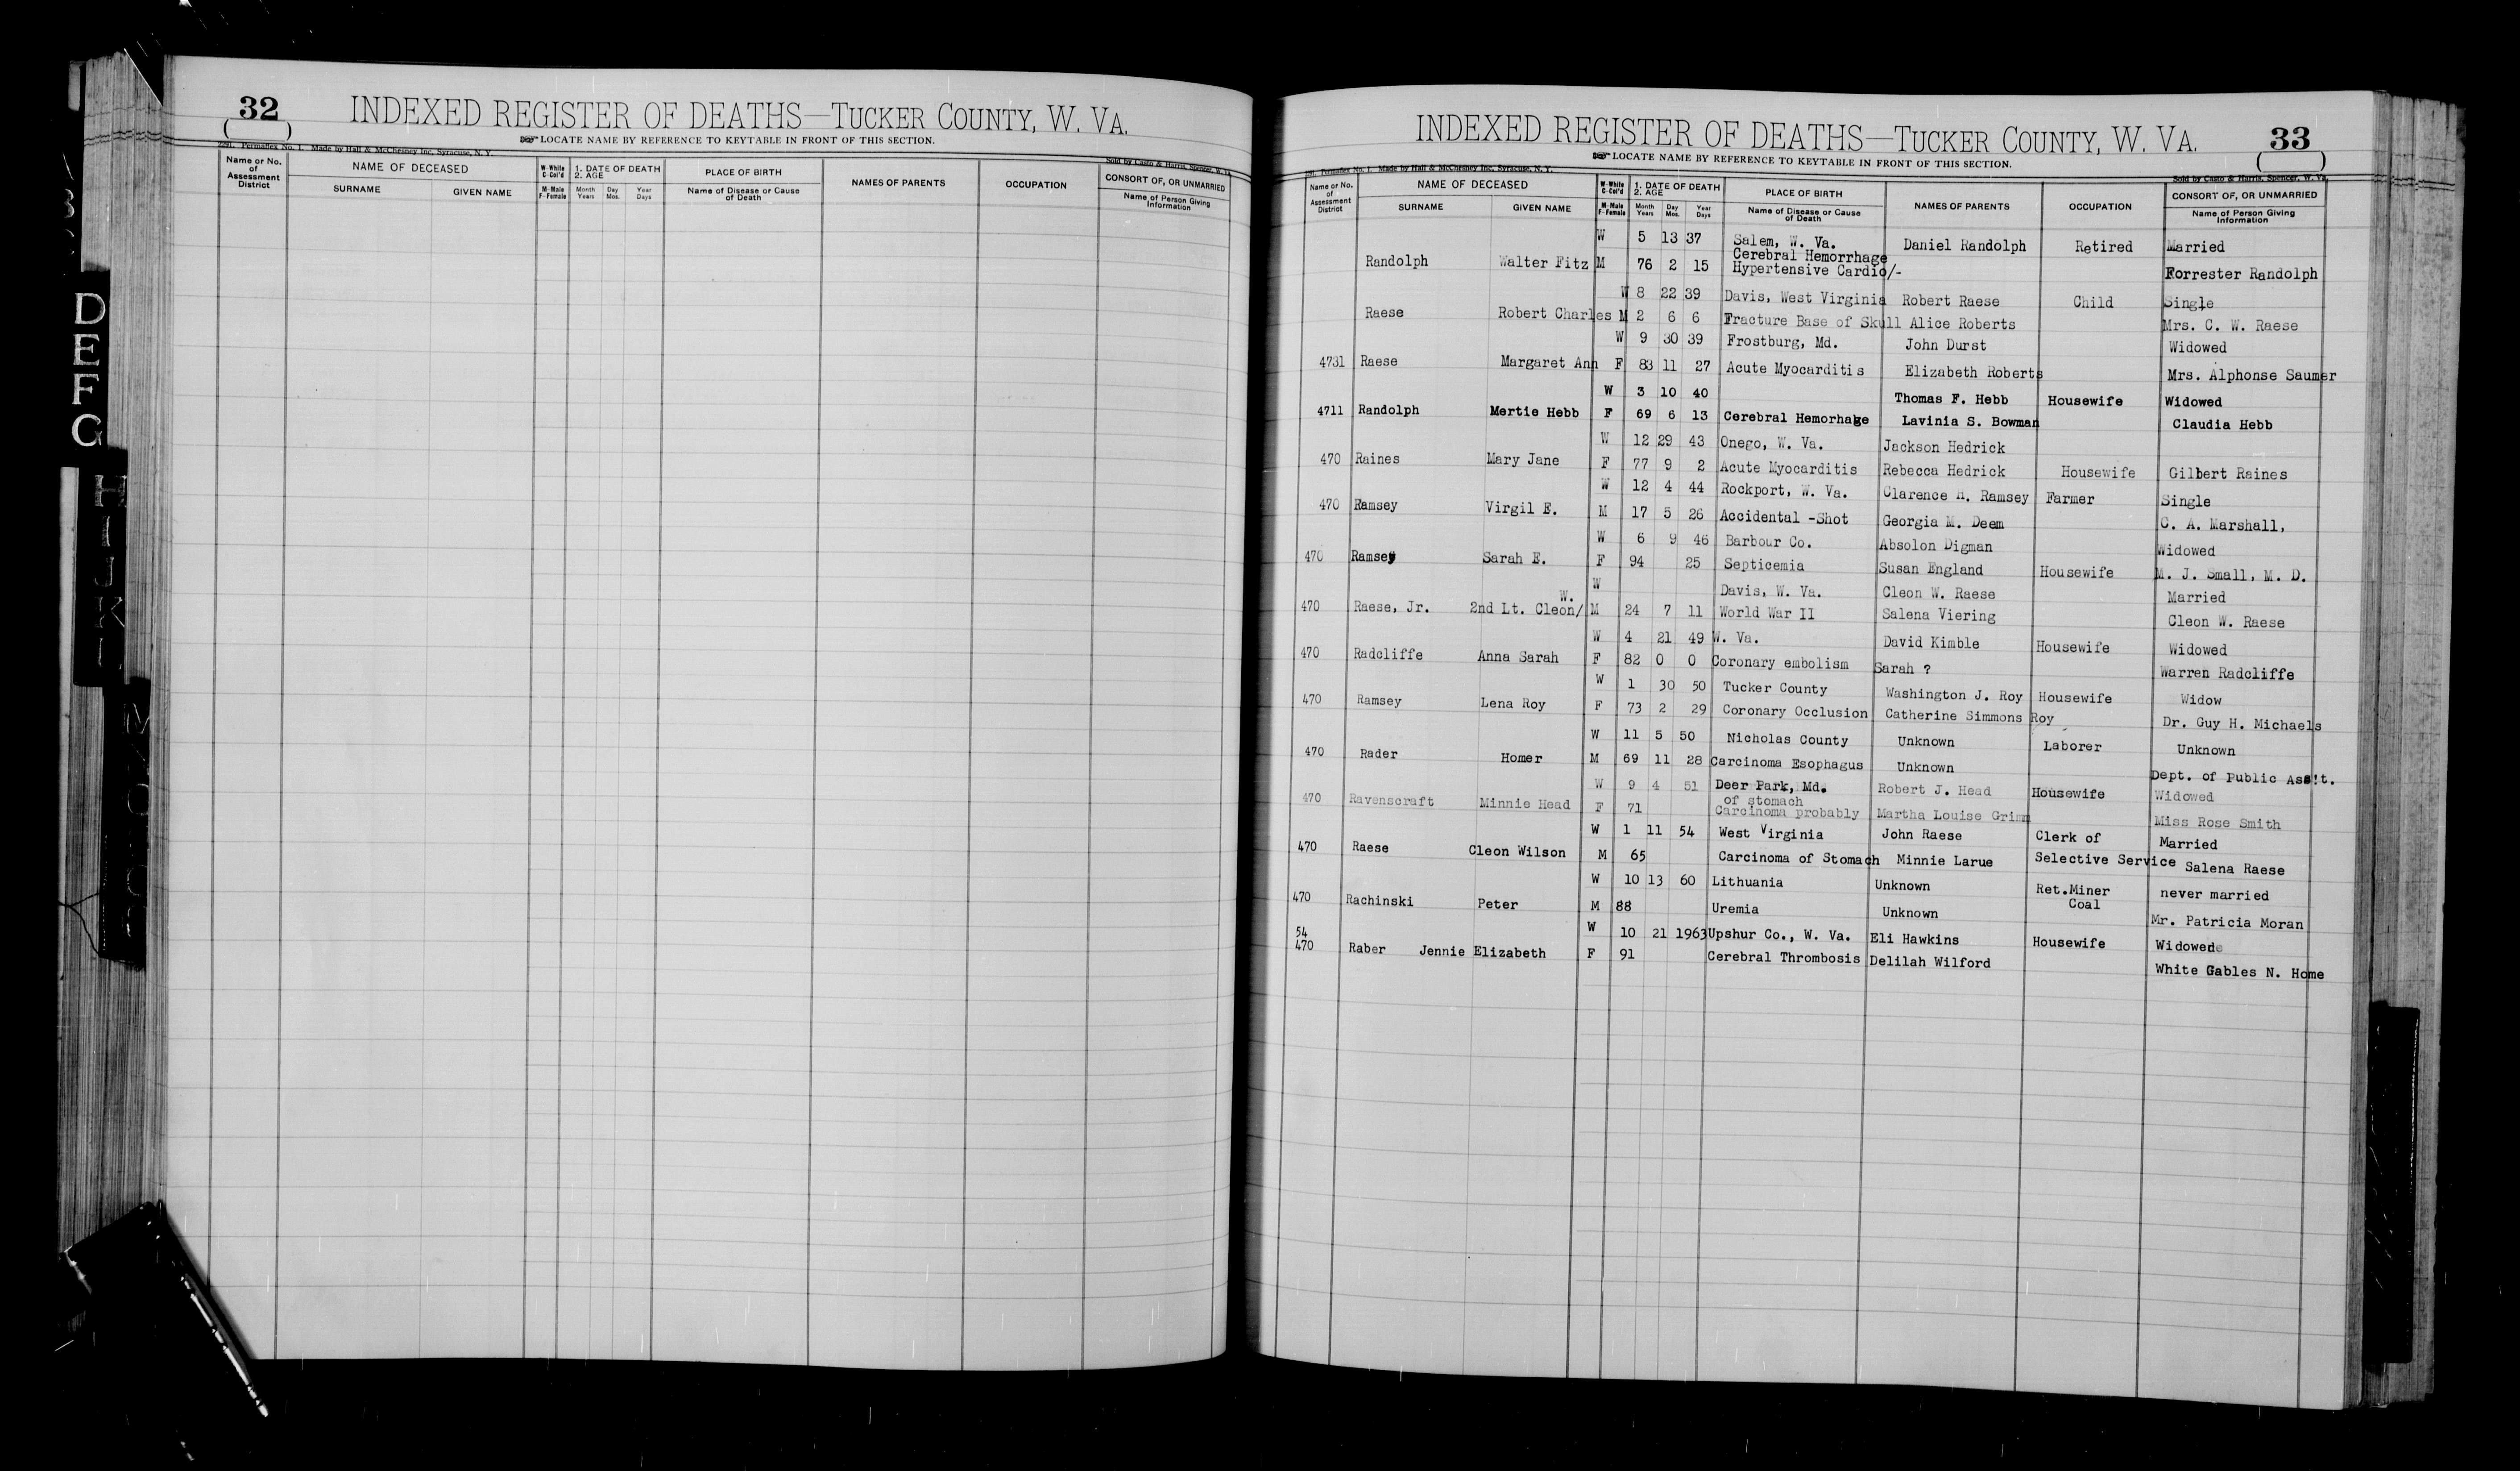 32
INDEXED REGISTER OF DEATHS—TUCKER COUNTY, W. VA.
LOCATE NAME BY REFERENCE TO KEYTABLE IN FRONT OF THIS SECTION.
Made by Hall & McChesney Inc, Syracuse, N. Y.
Sold by Casto & Harris, Spencer, W. Va.
Name or No. of Assessment District
NAME OF DECEASED
SURNAME GIVEN NAME
W-White C-Col'd
M-Male F-Female
1. DATE OF DEATH
2. AGE
Month Years Day Mos. Year Days
PLACE OF BIRTH
Name of Disease or Cause of Death
NAMES OF PARENTS
OCCUPATION
CONSORT OF, OR UNMARRIED
Name of Person Giving Information
D
E
F
G
H
I
J
K
L
INDEXED REGISTER OF DEATHS—TUCKER COUNTY, W. VA.
33
LOCATE NAME BY REFERENCE TO KEYTABLE IN FRONT OF THIS SECTION.
Made by Hall & McChesney Inc, Syracuse, N. Y.
Sold by Casto & Harris, Spencer, W. Va.
Name or No. of Assessment District
NAME OF DECEASED
SURNAME GIVEN NAME
W-White C-Col'd
M-Male F-Female
1. DATE OF DEATH
2. AGE
Month Years Day Mos. Year Days
PLACE OF BIRTH
Name of Disease or Cause of Death
NAMES OF PARENTS
OCCUPATION
CONSORT OF, OR UNMARRIED
Name of Person Giving Information
W 5 13 37 Salem, W. Va. Daniel Randolph Retired Married
Cerebral Hemorrhage
Randolph Walter Fitz M 76 2 15 Hypertensive Cardio/- Forrester Randolph
W 8 22 39 Davis, West Virginia Robert Raese Child Single
Raese Robert Charles M 2 6 6 Fracture Base of Skull Alice Roberts Mrs. C. W. Raese
W 9 30 39 Frostburg, Md. John Durst Widowed
4731 Raese Margaret Ann F 83 11 27 Acute Myocarditis Elizabeth Roberts Mrs. Alphonse Saumer
W 3 10 40 Thomas F. Hebb Housewife Widowed
4711 Randolph Mertie Hebb F 69 6 13 Cerebral Hemorhage Lavinia S. Bowman Claudia Hebb
W 12 29 43 Onego, W. Va. Jackson Hedrick
470 Raines Mary Jane F 77 9 2 Acute Myocarditis Rebecca Hedrick Housewife Gilbert Raines
W 12 4 44 Rockport, W. Va. Clarence H. Ramsey Farmer Single
470 Ramsey Virgil E. M 17 5 26 Accidental -Shot Georgia M. Deem C. A. Marshall,
W 6 9 46 Barbour Co. Absolon Digman Widowed
470 Ramsey Sarah E. F 94 25 Septicemia Susan England Housewife M. J. Small, M. D.
W Davis, W. Va. Cleon W. Raese Married
W.
470 Raese, Jr. 2nd Lt. Cleon/ M 24 7 11 World War II Salena Viering Cleon W. Raese
W 4 21 49 W. Va. David Kimble Housewife Widowed
470 Radcliffe Anna Sarah F 82 0 0 Coronary embolism Sarah ? Warren Radcliffe
W 1 30 50 Tucker County Washington J. Roy Housewife Widow
470 Ramsey Lena Roy F 73 2 29 Coronary Occlusion Catherine Simmons Roy Dr. Guy H. Michaels
W 11 5 50 Nicholas County Unknown Laborer Unknown
470 Rader Homer M 69 11 28 Carcinoma Esophagus Unknown Dept. of Public Ass't.
W 9 4 51 Deer Park, Md. Robert J. Head Housewife Widowed
of stomach
470 Ravenscraft Minnie Head F 71 Carcinoma probably Martha Louise Grimm Miss Rose Smith
W 1 11 54 West Virginia John Raese Clerk of Married
470 Raese Cleon Wilson M 65 Carcinoma of Stomach Minnie Larue Selective Service Salena Raese
W 10 13 60 Lithuania Unknown Ret.Miner never married
Coal
470 Rachinski Peter M 88 Uremia Unknown Mr. Patricia Moran
54 W 10 21 1963 Upshur Co., W. Va. Eli Hawkins Housewife Widowede
470 Raber Jennie Elizabeth F 91 Cerebral Thrombosis Delilah Wilford White Gables N. Home